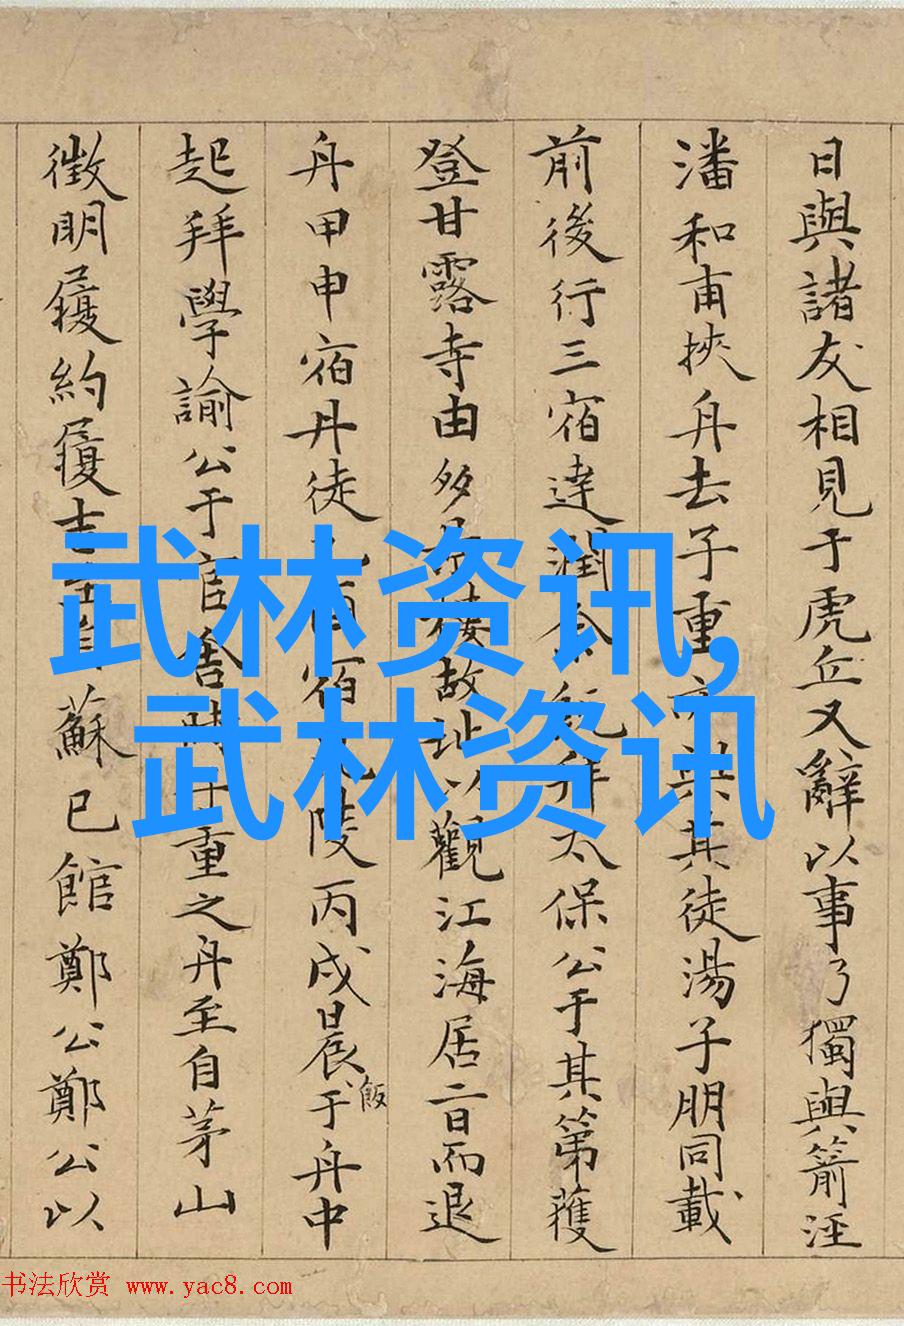 日與諸友相見于虎丘又辭以事乃獨與箭涇
潘和甫挾舟去子重亦與其徒湯子朋同載
前後行三宿達潤拜太保公于其第獲
登甘露寺由多景樓故址以觀江海居二日而退
舟甲申宿丹徒乙酉宿陵丙戌晨飯于舟中
起拜學諭公于官舍子重之舟至自茅山
徵明履約履吉至自蘇已館鄭公鄭公以
武林资讯,
武林资讯
书法欣赏 www.yac8.com